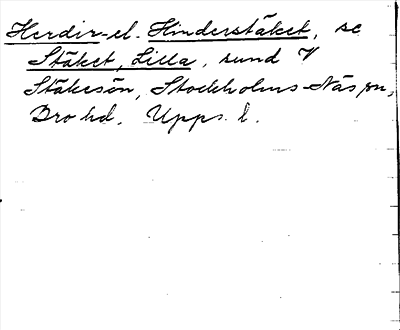 Herdir- el. Hinderstäket, se
Stäket, Lilla, sund V
Stäkesön, Stockholms-Näs sn,
Bro hd, Upps. l.